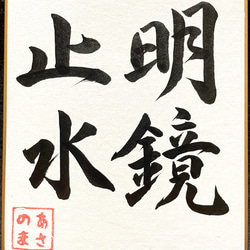 明鏡
止水
あさ
のま